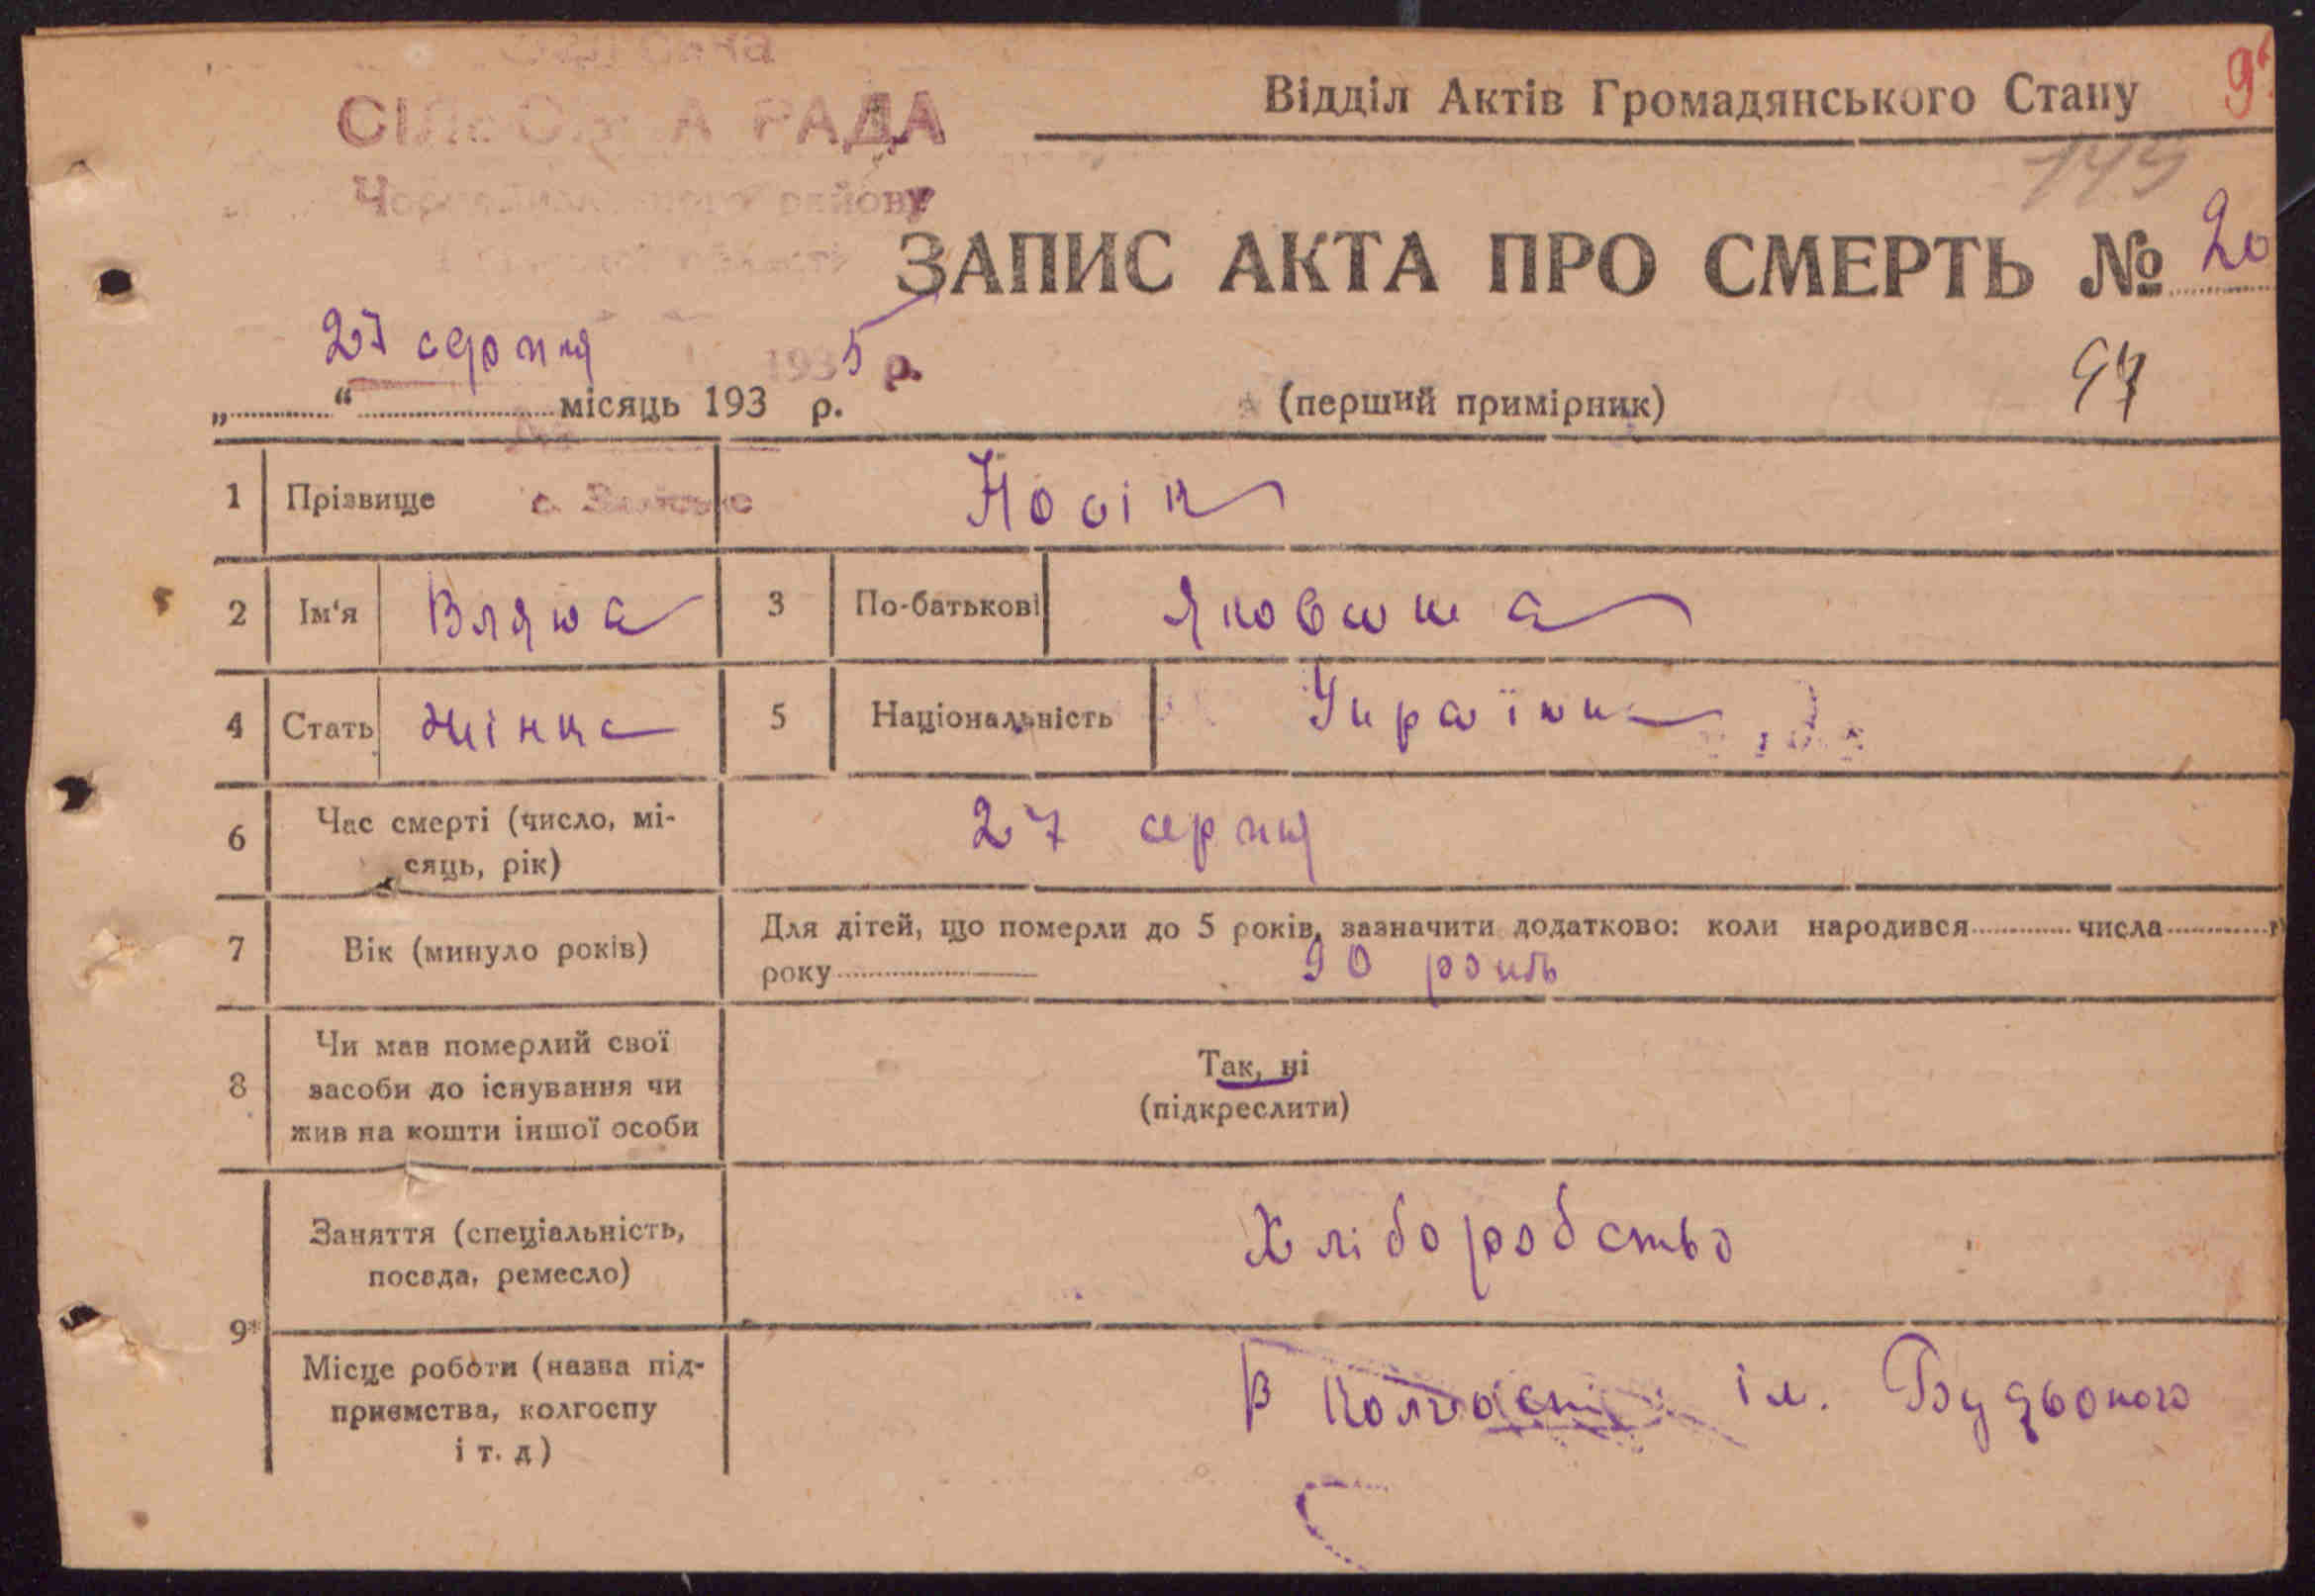 СІЛЬСЬКА РАДА
району
Відділ Актів Громадянського Стану
149
ЗАПИС АКТА ПРО СМЕРТЬ № 20
27 серпня 1935 р.
„ “ місяць 193 р.
(перший примірник)
97
1 Прізвище Носік
2 Ім‘я 3 По-батькові Яковина
4 Стать жінка 5 Національність Українка
6 Час смерті (число, мі-
сяць, рік) 27 серпня
7 Вік (минуло років) Для дітей, що померли до 5 років, зазначити додатково: коли народився числа
року 90 років
8 Чи мав померлий свої
засоби до існування чи
жив на кошти іншої особи
Так, ні
(підкреслити)
9* Заняття (спеціальність,
посада, ремесло) Хліборобство
Місце роботи (назва під-
приємства, колгоспу
і т. д) В Колгоспі ім. Будьоного